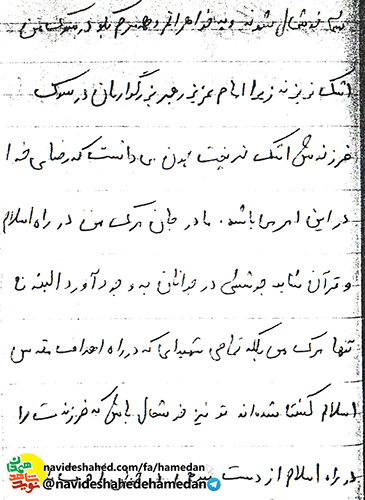 خوشحال شوند و به خواهرانم بگو در سوگ من
اشک نریزند زیرا امام عزیز رهبر بزرگوارمان در سوگ
فرزندش اشک نریخت چون می دانست که رضای خدا
در این امر می باشد. مادر جان مرگ من در راه اسلام
و قرآن شاید جوششی در جوانان به وجود آورد البته نه
تنها مرگ من بلکه تمامی شهیدانی که در راه اهداف مقدس
اسلام کشته شده اند تو نیز خوشحال باش که فرزندت را
در راه اسلام از دست
navideshahed.com/fa/hamedan
@navideshahedehamedan